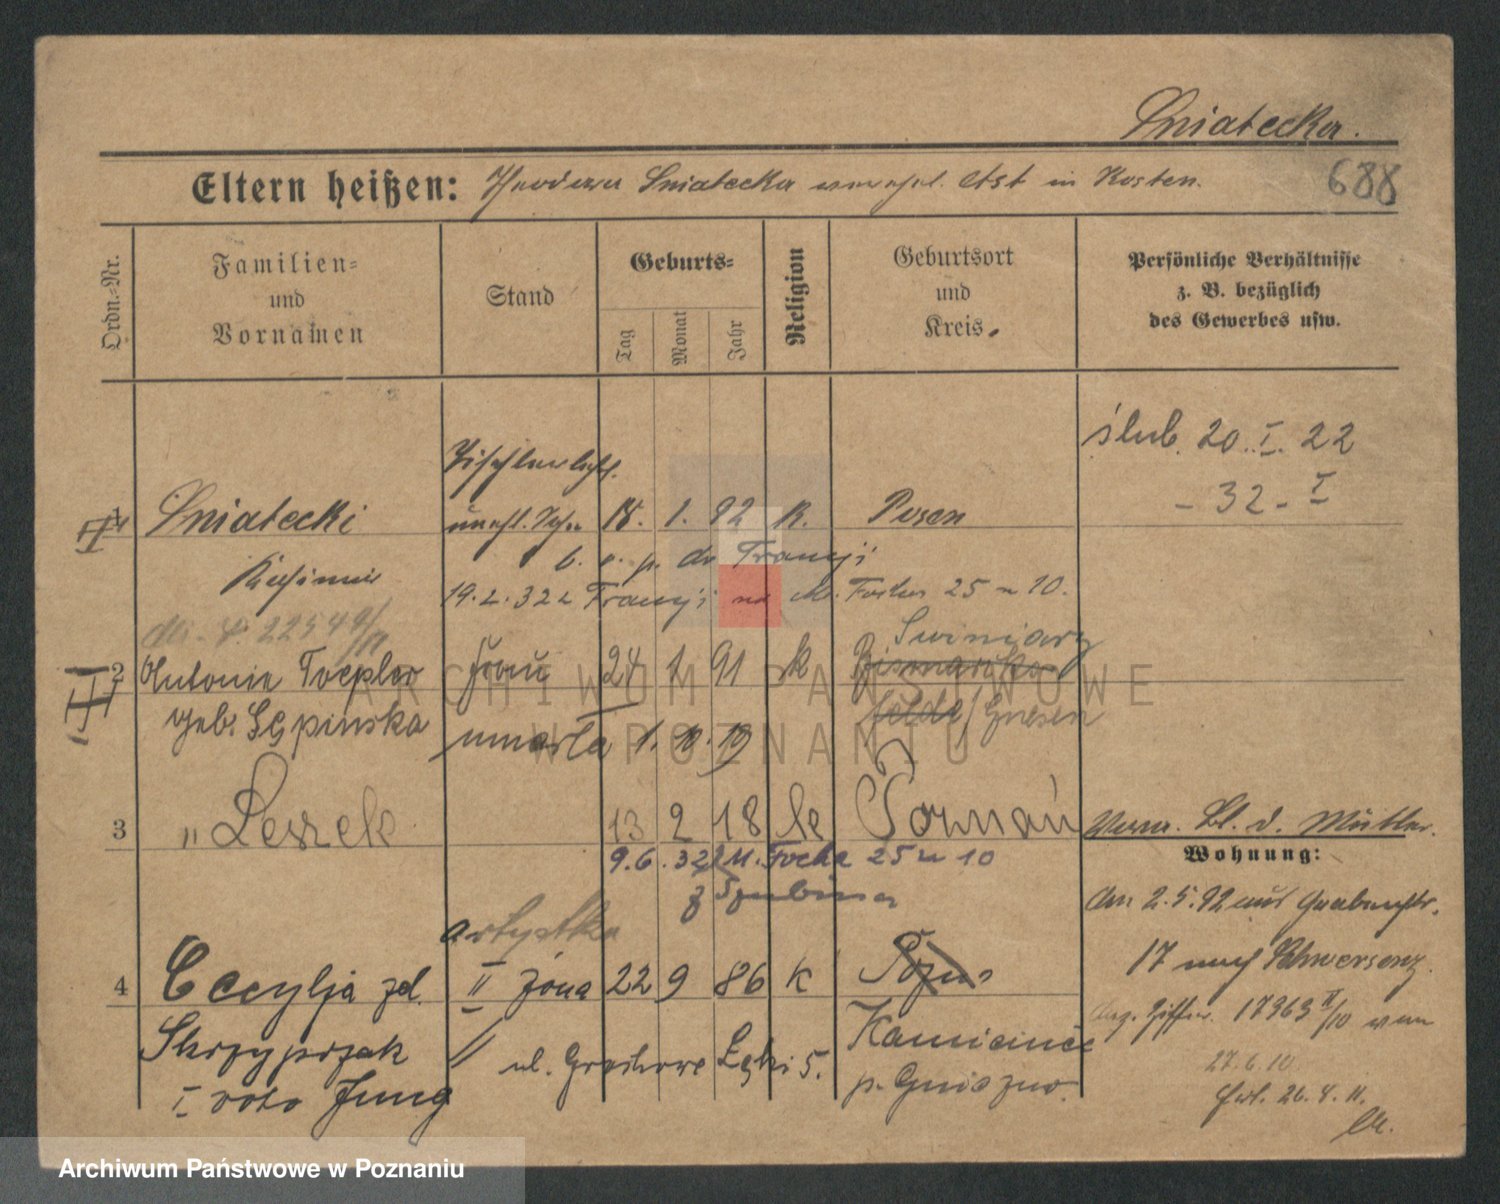 Śniatecka.
688
Eltern heißen: Theodora Śniatecka in Kosten.
Ordn.-Nr.
Familien-
und
Vornamen
Stand
Geburts-
Tag
Monat
Jahr
Religion
Geburtsort
und
Kreis.
Persönliche Verhältnisse
z. B. bezüglich
des Gewerbes usw.
ślub. 20. I. 22
- 32 - I
1 Śniatecki 18. 1. 92 K. Posen
Kasimir
b. o. p. do Francji
19.2.32 z Francji na M. Focha 25 m 10.
2 Antonie Toepler Frau 24 1 91 k Swiniary
geb. Sępinska /Gnesen
umarła 1. 10. 19
3 " Leszek 13 2 18 k Poznań
9.6.32 M. Focha 25 m 10
z Szubina
Verm. Bl. d. Mutter.
Wohnung:
An 2.5.92 aus
17 nach Schwersenz.
17363 II/10 vom
27.6.10
26.4.11.
artystka
4 Cecylja zd. II żona 22 9 86 k
Skrzypczak ul. Grochowe Łąki 5. Kamieniec
I voto Jung p. Gniezno.
ARCHIWUM PAŃSTWOWE
W POZNANIU
Archiwum Państwowe w Poznaniu